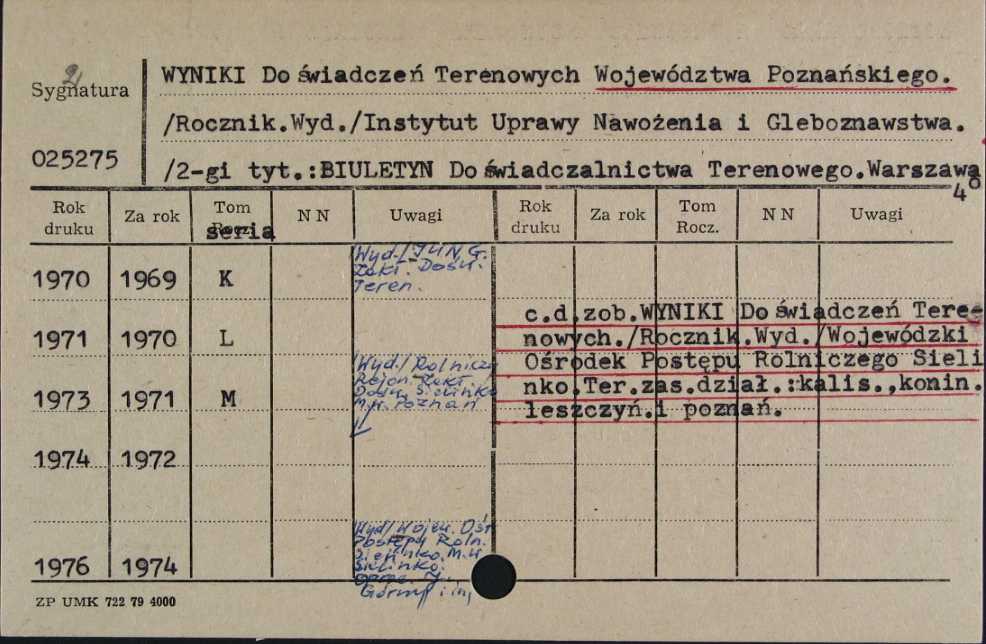 Sygnatura
025275
WYNIKI Doświadczeń Terenowych Województwa Poznańskiego.
/Rocznik.Wyd./Instytut Uprawy Nawożenia i Gleboznawstwa.
/2-gi tyt.:BIULETYN Doświadczalnictwa Terenowego.Warszawa
4°
Rok druku Za rok Tom Rocz. seria NN Uwagi Rok druku Za rok Tom Rocz. NN Uwagi
1970 1969 K Wyd./IUNG.
Zakł. Dośw.
Teren.
1971 1970 L
1973 1971 M Wyd./Rolnicz.
Rejon. Zakł.
Dośw. Sielinko
Poznań
1974 1972
1976 1974 Wyd/Wojew. Ośr.
Postępu Roln.
Sielinko.
Sielinko.
Górny i in,
c.d.zob.WYNIKI Doświadczeń Tere
nowych./Rocznik.Wyd./Wojewódzki
Ośrodek Postępu Rolniczego Sieli
nko.Ter.zas.dział.:kalis.,konin.
leszczyń.i poznań.
ZP UMK 722 79 4000